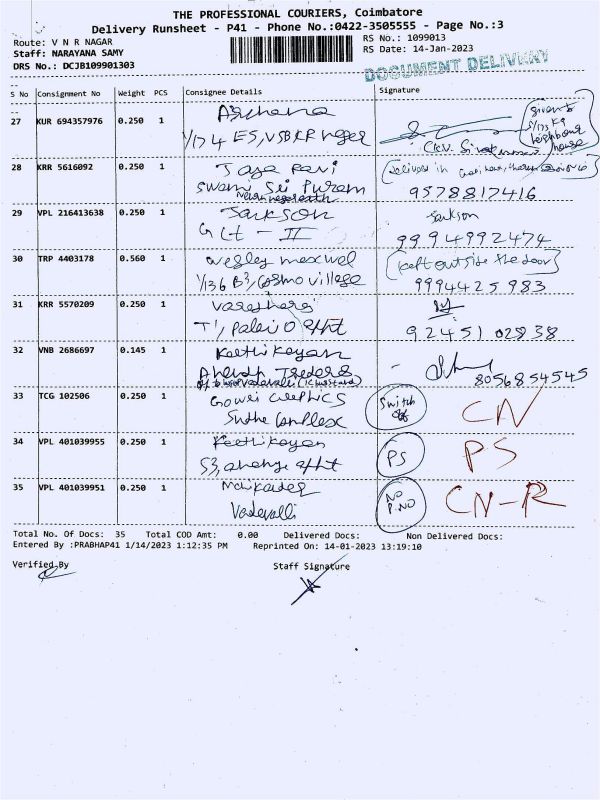 THE PROFESSIONAL COURIERS, Coimbatore
Delivery Runsheet - P41 - Phone No.:0422-3505555 - Page No.:3
Route: V N R NAGAR
Staff: NARAYANA SAMY
DRS No.: DCJB109901303
RS No.: 1099013
RS Date: 14-Jan-2023
DOCUMENT DELIVERY
S No Consignment No Weight PCS Consignee Details Signature
27 KUR 694357976 0.250 1 Archana
1/174 E5, VSB KR nagar
given to
neighbour
house
28 KRR 5616092 0.250 1 Jaya ravi
Swami Sri Puram
9578817416
29 VPL 216413638 0.250 1 Jackson Jackson
G Ct - II 9994992474
30 TRP 4403178 0.560 1 wesley maxwel (kept outside the door)
1/136 B3, Cosmo village 9994425983
31 KRR 5570209 0.250 1
T1, 9245102838
32 VNB 2686697 0.145 1 Keethikeyan
8056854545
33 TCG 102506 0.250 1 Switch off CN
34 VPL 401039955 0.250 1 Keethikeyan PS PS
S3,
35 VPL 401039951 0.250 1 No P.NO CN-R
Vadavalli
Total No. Of Docs: 35 Total COD Amt: 0.00 Delivered Docs: Non Delivered Docs:
Entered By :PRABHAP41 1/14/2023 1:12:35 PM Reprinted On: 14-01-2023 13:19:10
Verified By Staff Signature